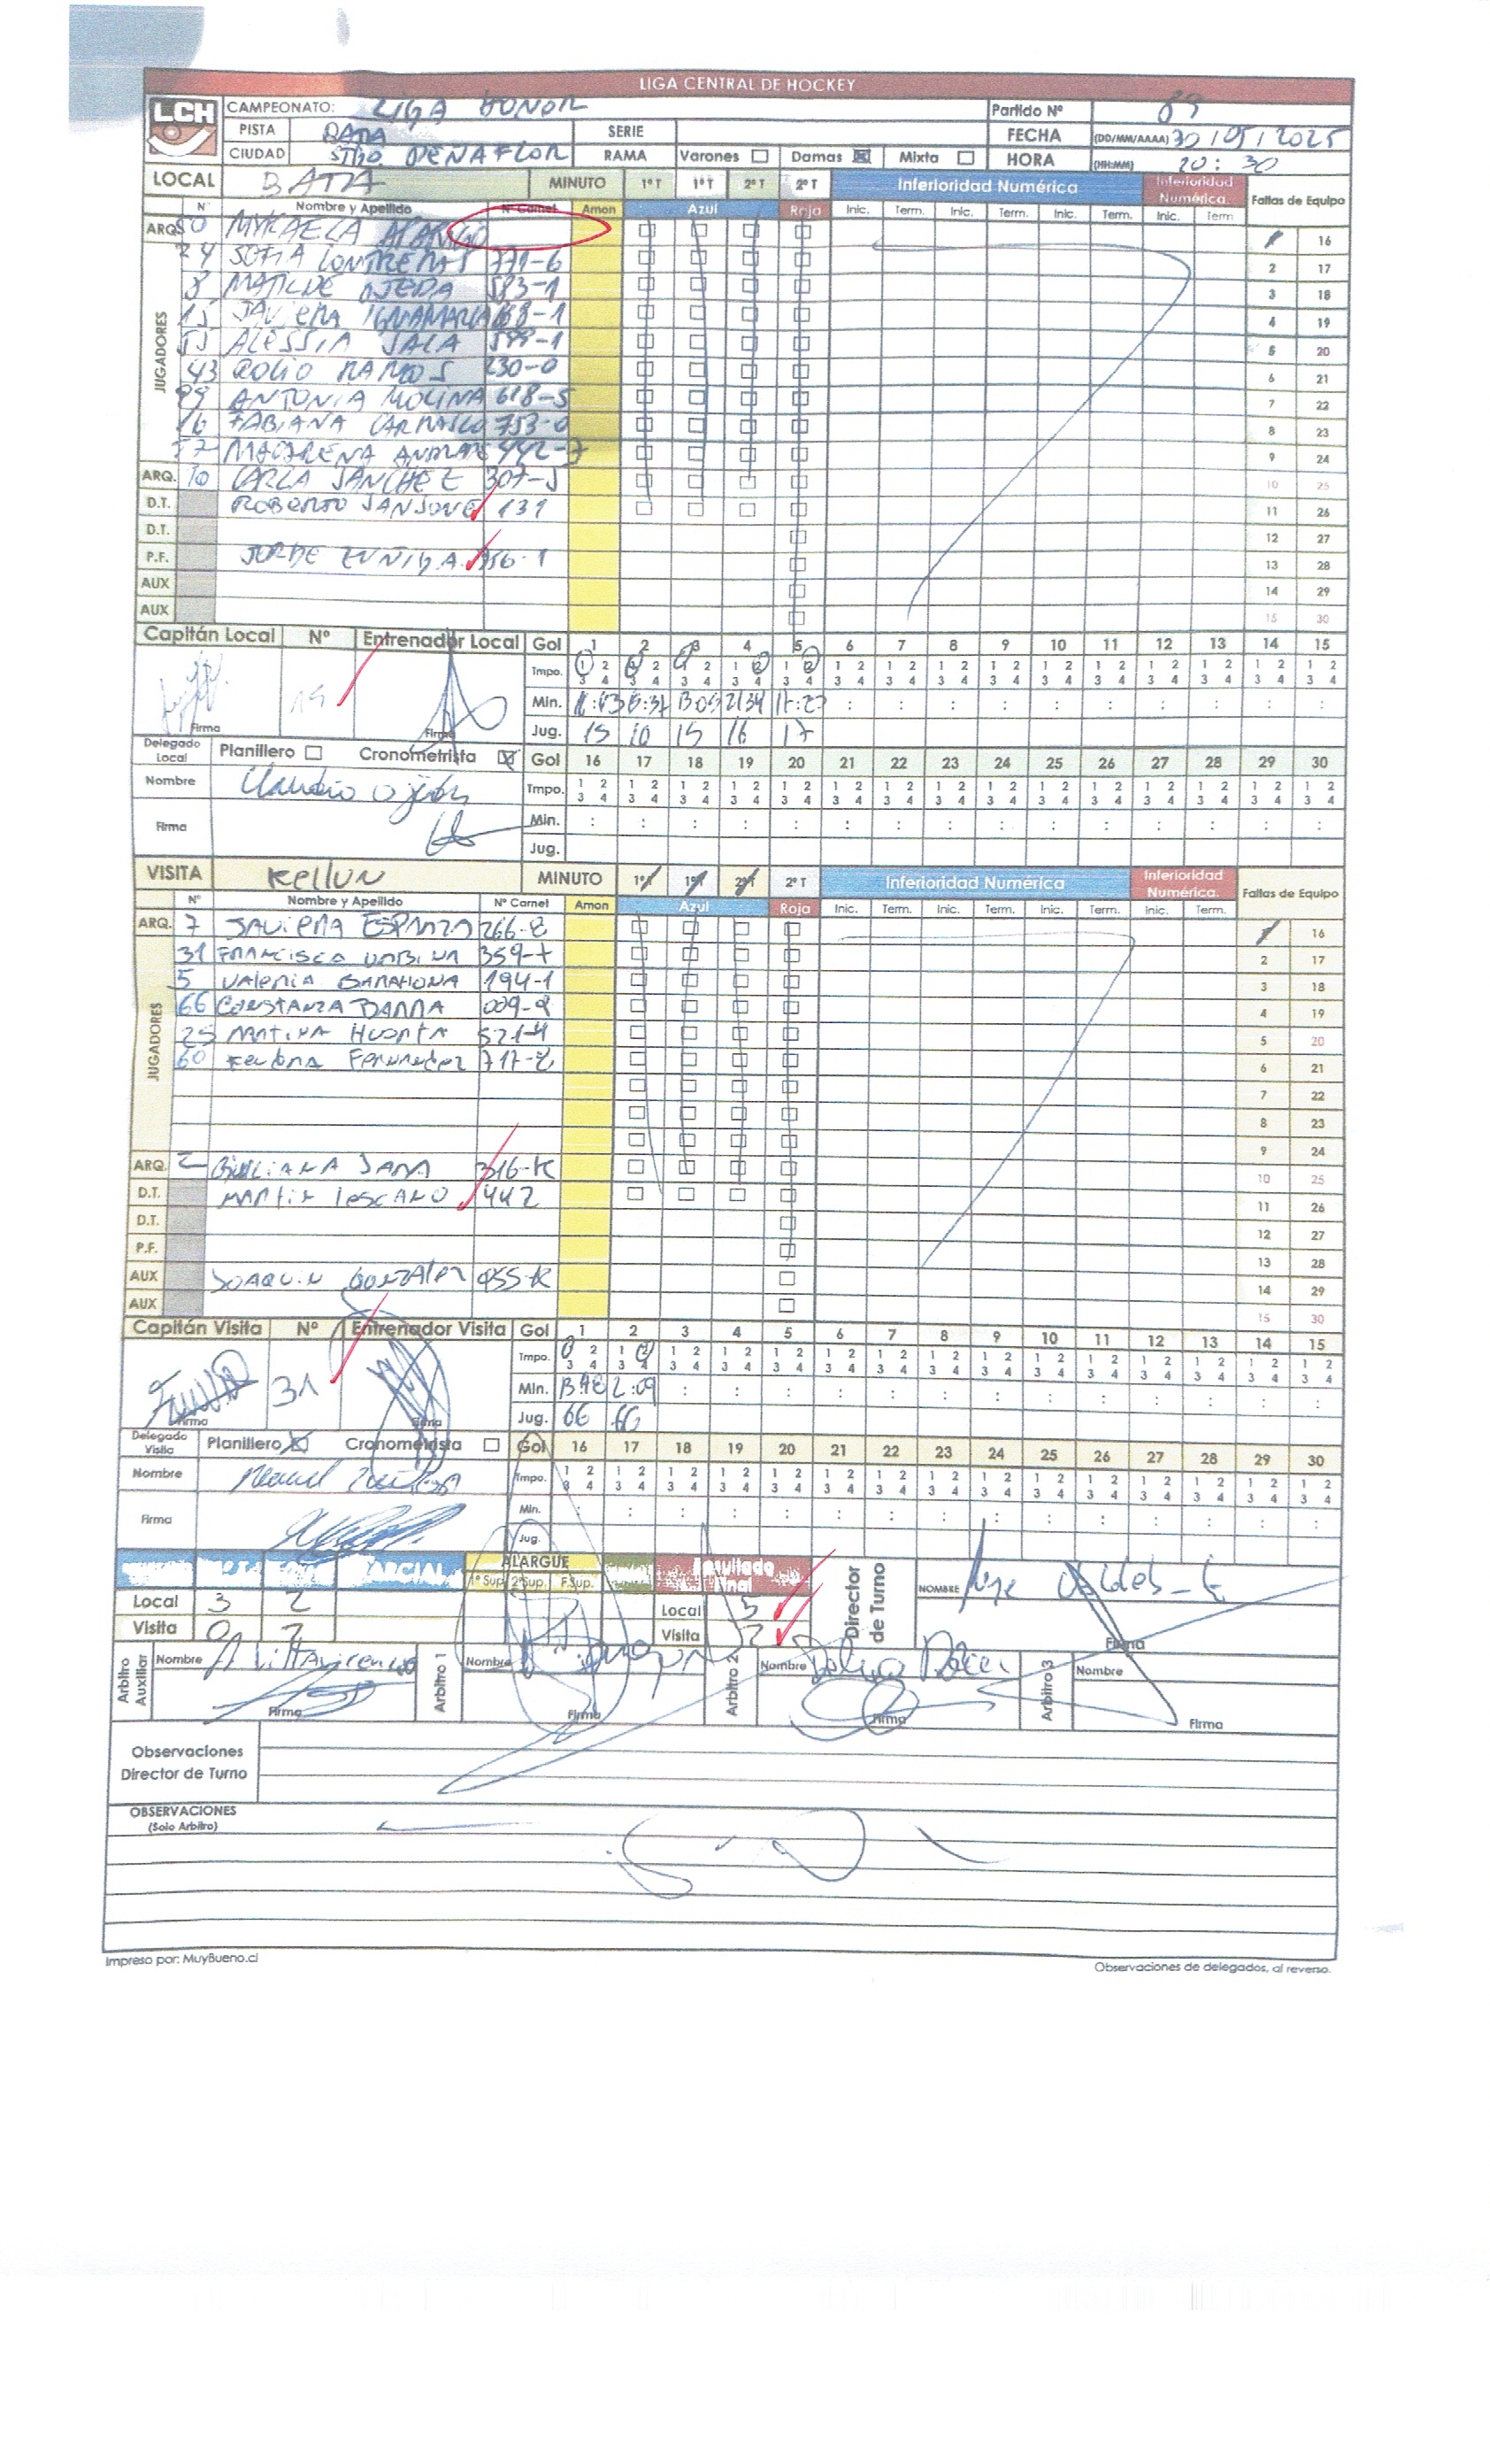 LIGA CENTRAL DE HOCKEY
LCH CAMPEONATO: LIGA HONOR Partido Nº 89
PISTA BATA SERIE FECHA (DD/MM/AAAA) 30/05/2025
CIUDAD STGO. PEÑAFLOR RAMA Varones Damas Mixta HORA (HH:MM) 20:30
LOCAL BATA MINUTO 1º T 1º T 2º T 2º T Inferioridad Numérica Inferioridad Numérica Fallas de Equipo
Nº Nombre y Apellido Nº Carnet Amon Azul Roja Inic. Term. Inic. Term. Inic. Term. Inic. Term
ARQ. 50 MYKAELA 1 16
JUGADORES
24 SOFIA CONTRERAS 771-6 2 17
8 MATILDE OJEDA 583-1 3 18
15 JAVIERA 4 19
55 ALESSIA SALA 5 20
43 ROCIO RAMOS 230-0 6 21
89 ANTONIA MOLINA 618-5 7 22
16 FABIANA CARRASCO 753-0 8 23
17 MACARENA 442-7 9 24
ARQ. 10 CARLA SANCHEZ 307-5 10 25
D.T. ROBERTO 131 11 26
D.T. 12 27
P.F. JORGE ZUÑIGA. 956-1 13 28
AUX 14 29
AUX 15 30
Capitán Local Nº Entrenador Local Gol 1 2 3 4 5 6 7 8 9 10 11 12 13 14 15
Tmpo. 1 2 3 4 1 2 3 4 1 2 3 4 1 2 3 4 1 2 3 4 1 2 3 4 1 2 3 4 1 2 3 4 1 2 3 4 1 2 3 4 1 2 3 4 1 2 3 4 1 2 3 4 1 2 3 4 1 2 3 4
15 Min. : : : : : : : : : :
Firma Firma Jug. 15 10 15 16 17
Delegado Local Planillero Cronometrista Gol 16 17 18 19 20 21 22 23 24 25 26 27 28 29 30
Nombre Claudio Tmpo. 1 2 3 4 1 2 3 4 1 2 3 4 1 2 3 4 1 2 3 4 1 2 3 4 1 2 3 4 1 2 3 4 1 2 3 4 1 2 3 4 1 2 3 4 1 2 3 4 1 2 3 4 1 2 3 4 1 2 3 4
Firma Min. : : : : : : : : : : : : : : :
Jug.
VISITA Kellun MINUTO 1º T 1º T 2º T 2º T Inferioridad Numérica Inferioridad Numérica. Fallas de Equipo
Nº Nombre y Apellido Nº Carnet Amon Azul Roja Inic. Term. Inic. Term. Inic. Term. Inic. Term.
ARQ. 7 JAVIERA 266-2 1 16
JUGADORES
31 FRANCISCA URBINA 359-7 2 17
5 Valeria BARAHONA 194-1 3 18
66 CONSTANZA PARRA 009-2 4 19
25 MARTINA HUERTA 521-4 5 20
60 Fernandez 717-2 6 21
7 22
8 23
9 24
ARQ. 2 GIULIANA JARA 316-K 10 25
D.T. MARTIN LESCANO 442 11 26
D.T. 12 27
P.F. 13 28
AUX JOAQUIN GONZALEZ 955-K 14 29
AUX 15 30
Capitán Visita Nº Entrenador Visita Gol 1 2 3 4 5 6 7 8 9 10 11 12 13 14 15
Tmpo. 1 2 3 4 1 2 3 4 1 2 3 4 1 2 3 4 1 2 3 4 1 2 3 4 1 2 3 4 1 2 3 4 1 2 3 4 1 2 3 4 1 2 3 4 1 2 3 4 1 2 3 4 1 2 3 4 1 2 3 4
31 Min. 2:09 : : : : : : : : : : : : :
Firma Firma Jug. 66 66
Delegado Visita Planillero Cronometrista Gol 16 17 18 19 20 21 22 23 24 25 26 27 28 29 30
Nombre Manuel Tmpo. 1 2 3 4 1 2 3 4 1 2 3 4 1 2 3 4 1 2 3 4 1 2 3 4 1 2 3 4 1 2 3 4 1 2 3 4 1 2 3 4 1 2 3 4 1 2 3 4 1 2 3 4 1 2 3 4 1 2 3 4
Firma Min. : : : : : : : : : : : : : :
Jug.
PARCIAL ALARGUE 1º Sup. 2º Sup. F.Sup. Resultado Final Director de Turno NOMBRE
Local 3 2 Local 5
Visita 0 2 Visita 2 Firma
Arbitro Auxiliar Nombre Villavicencio Arbitro 1 Nombre Arbitro 2 Nombre Arbitro 3 Nombre
Firma Firma Firma Firma
Observaciones Director de Turno
OBSERVACIONES
(Solo Arbitro)
Impreso por: MuyBueno.cl Observaciones de delegados, al reverso.